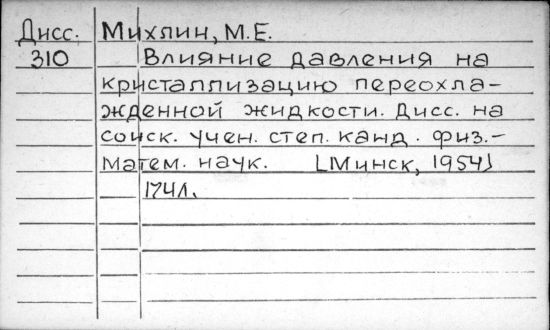 Дисс. Михлин, М.Е.
310 Влияние давления на
кристаллизацию переохла-
жденной жидкости. Дисс. на
соиск. учен. степ. канд. физ.-
матем. наук. [Минск, 1954]
174л.